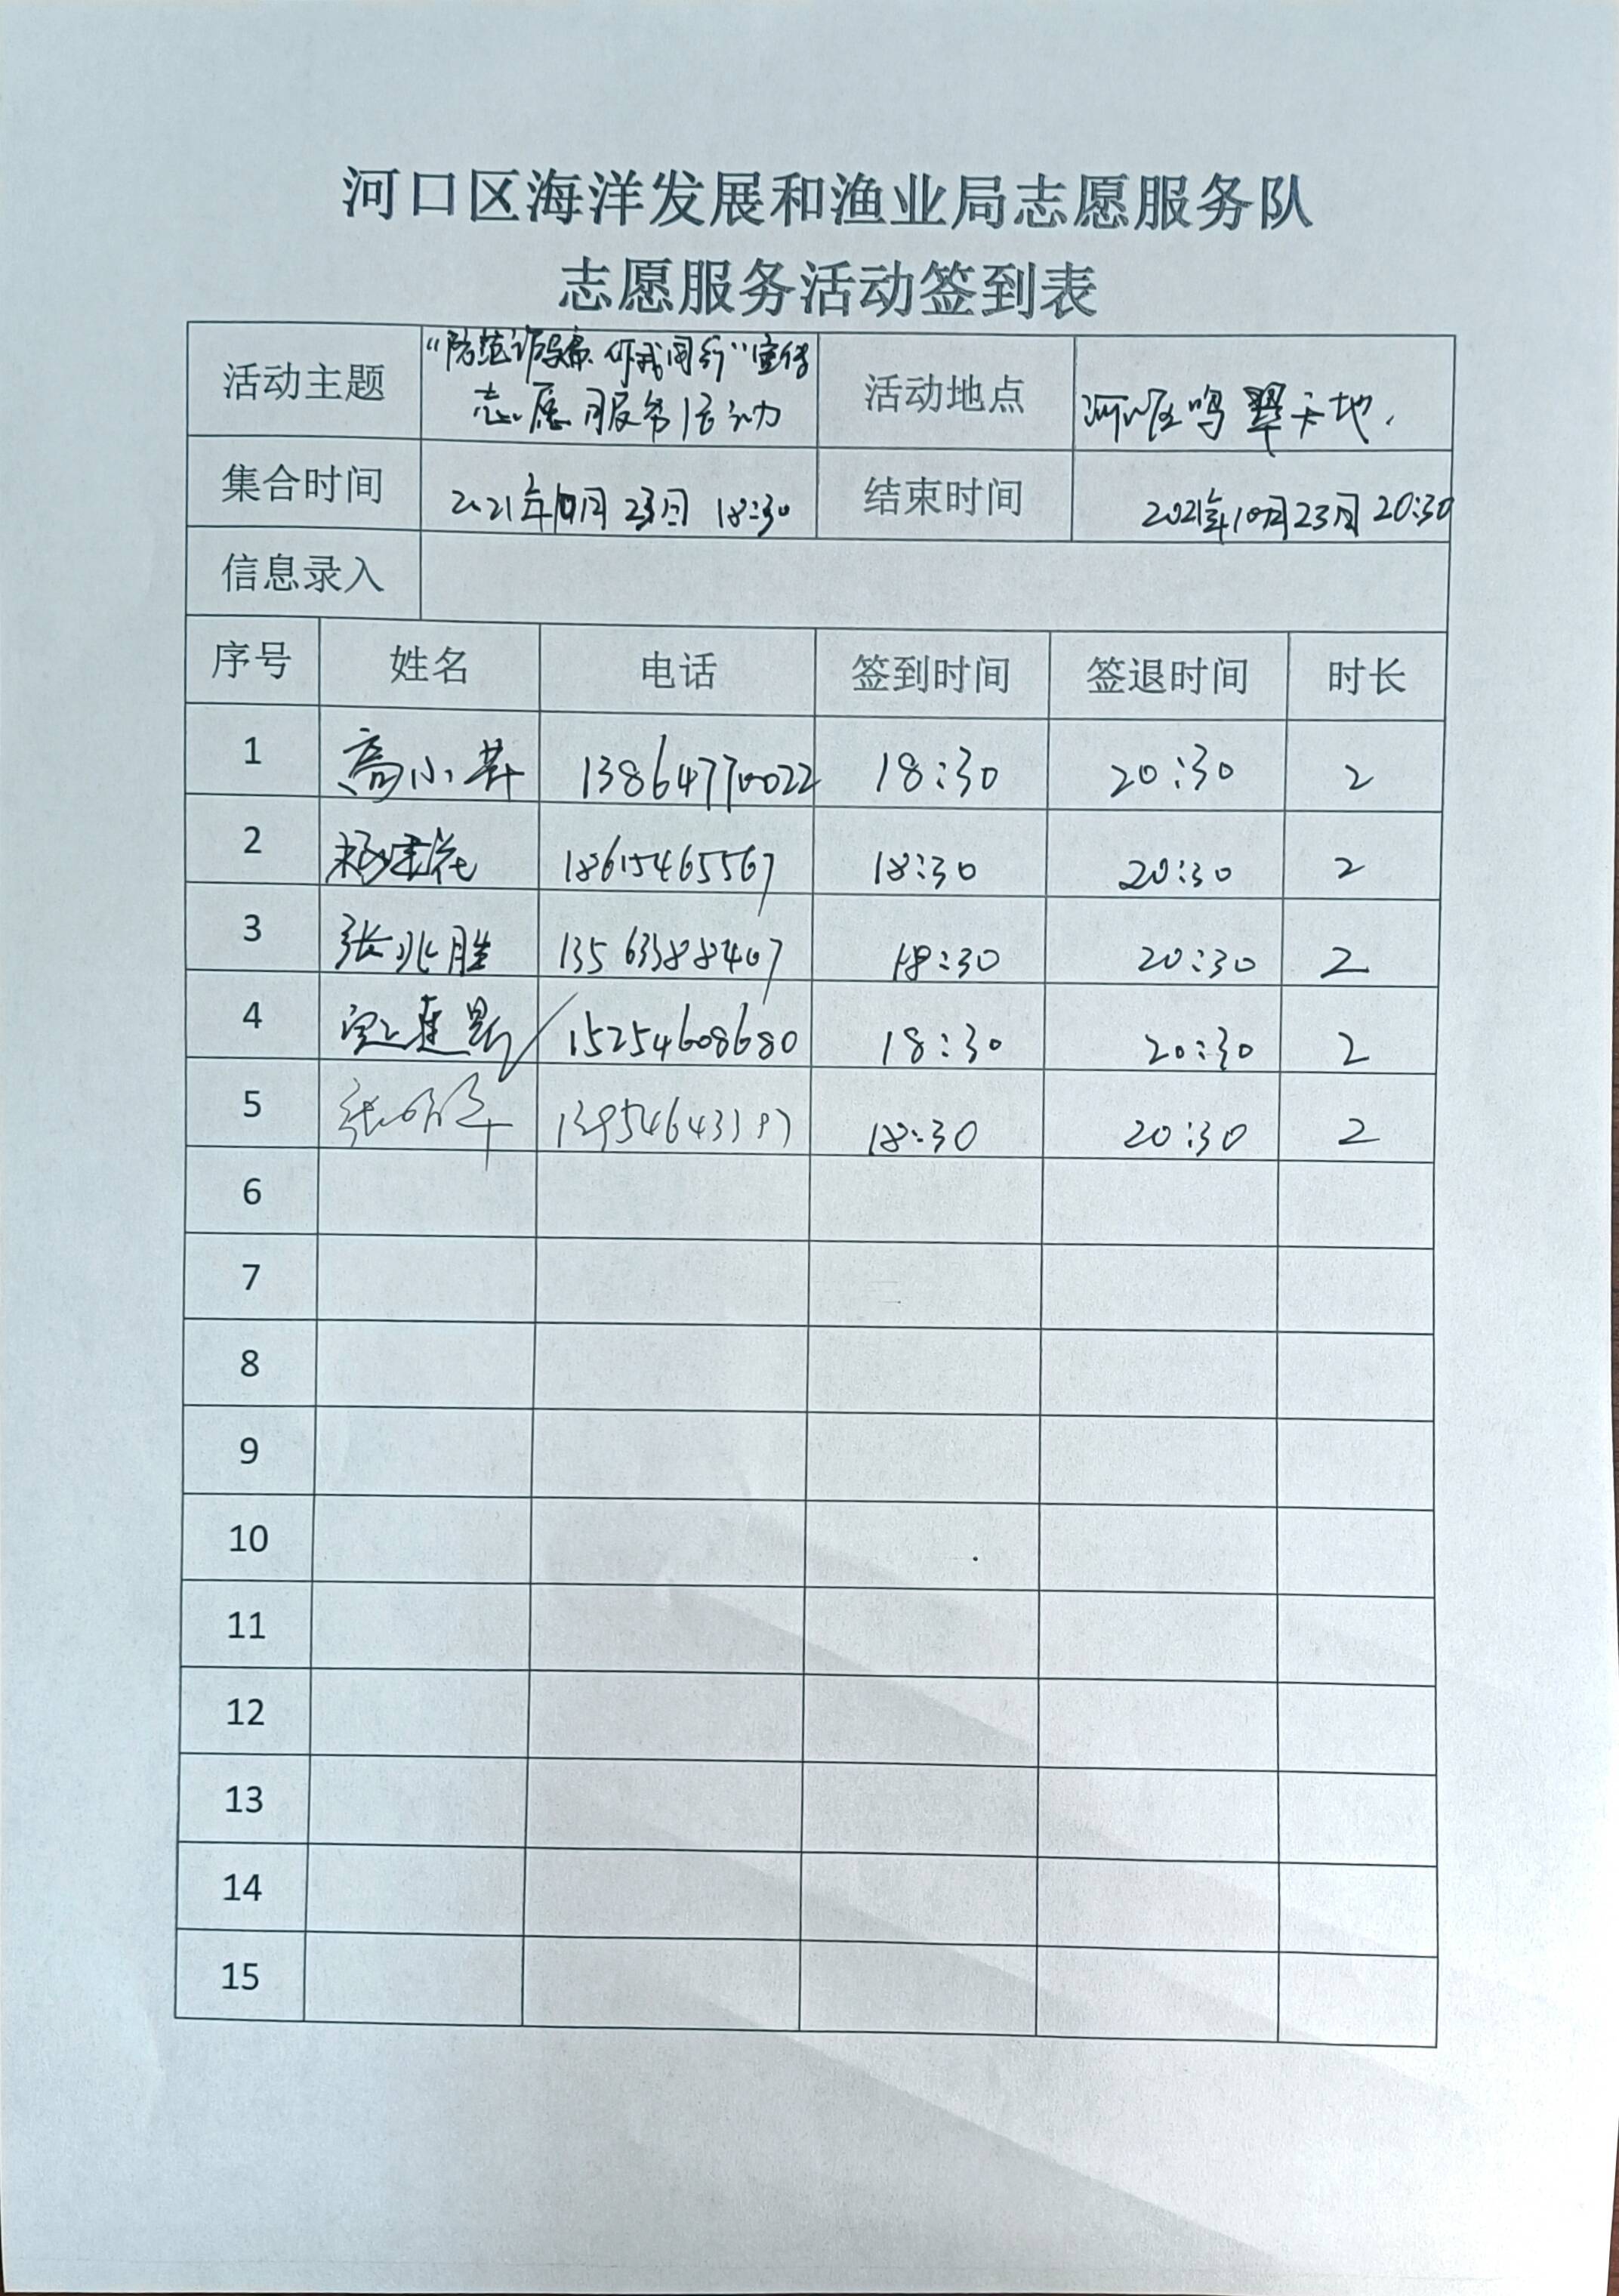 河口区海洋发展和渔业局志愿服务队
志愿服务活动签到表
活动主题 “防范诈骗 你我同行”宣传 活动地点 河口区鸣翠天地.
志愿服务活动
集合时间 2021年10月23日 18:30 结束时间 2021年10月23日 20:30
信息录入
序号 姓名 电话 签到时间 签退时间 时长
1 高小 13864770022 18:30 20:30 2
2 杨 18615465567 18:30 20:30 2
3 张兆胜 13563388407 18:30 20:30 2
4 15254608680 18:30 20:30 2
5 张 18:30 20:30 2
6
7
8
9
10
11
12
13
14
15